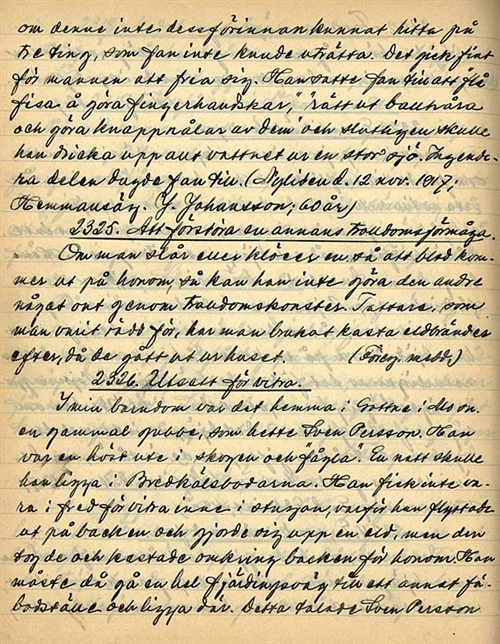 om denne inte dessförinnan kunnat hitta på
tre ting, som fan inte kunde uträtta. Det gick fint
för mannen att fria sig. Han satte fan till att "flå
fisa å göra fingerhandskar", "rätt ut bauthåra
och göra knappnålar av dem" och slutligen skulle
han dricka upp allt vattnet ur en stor sjö. Ingende-
ra delen dugde fan till. (Nyliden d. 12 nov. 1917;
Hemmansäg. J. Johansson; 60 år)
2325. Att förstöra en annans trolldomsförmåga.
Om man slår eller klöser en så att blod kom-
mer ut på honom, så kan han inte göra den andre
något ont genom trolldomskonster. Tattare, som
man varit rädd för, har man brukat kasta eldbränder
efter, då de gått ut ur huset. (Föreg. medd.)
2326. Utsatt för vitra.
I min barndom var det hemma i Gottne i Mo en
en gammal gubbe, som hette Sven Persson. Han
var en hört ute i skogen och "fågla". En natt skulle
han ligga i Bredkälsbodarna. Han fick inte va-
ra i fred för vitra inne i stugan, varför han flyttade
ut på backen och gjorde sig upp en eld, men den
tog de och kastade omkring backen för honom. Han
måste då gå en hel fjärdingsväg till ett annat fä-
bodställe och ligga där. Detta talade Sven Persson